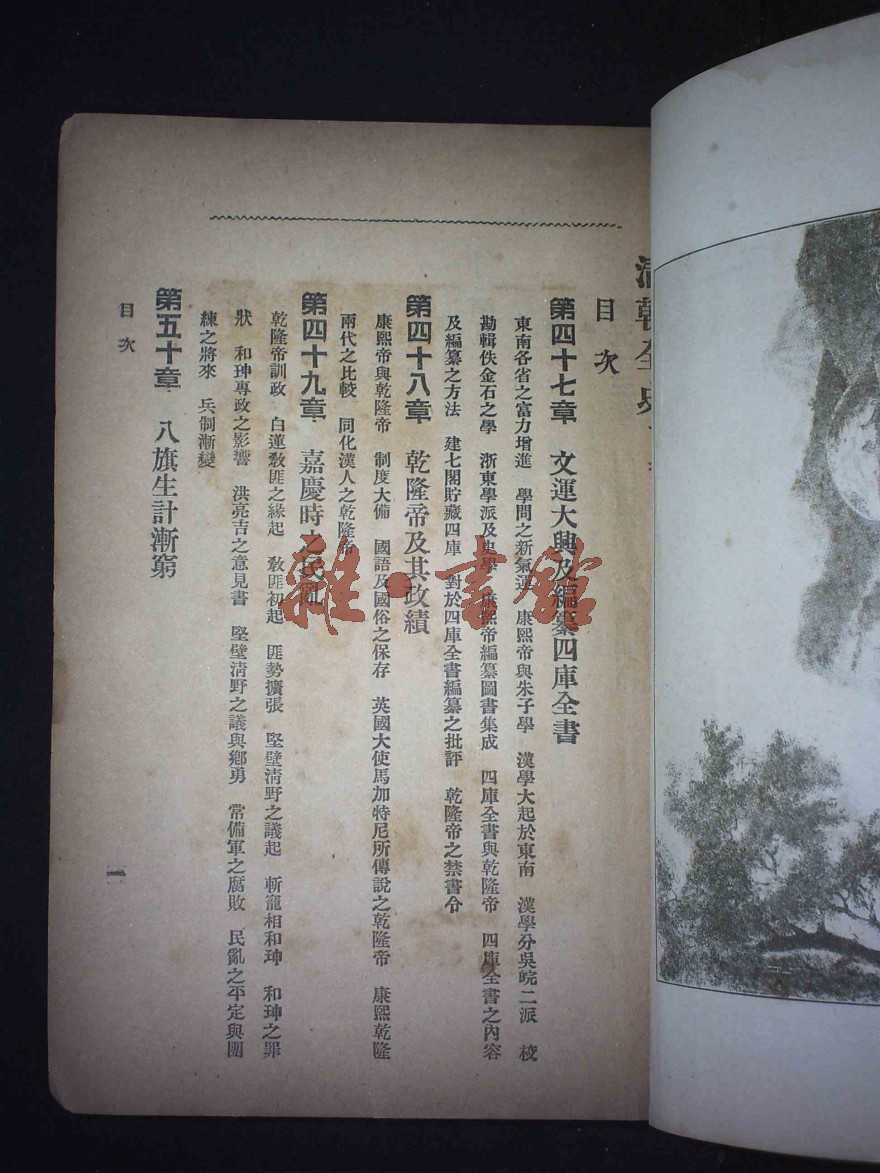 清朝全史
目次
第四十七章 文運大興及編纂四庫全書
東南各省之富力增進 學問之新氣運 康熙帝與朱子學 漢學大起於東南 漢學分吳皖二派 校
勘輯佚金石之學 浙東學派及史學 康熙帝編纂圖書集成 四庫全書與乾隆帝 四庫全書之內容
及編纂之方法 建七閣貯藏四庫 對於四庫全書編纂之批評 乾隆帝之禁書令
第四十八章 乾隆帝及其政績
康熙帝與乾隆帝 制度大備 國語及國俗之保存 英國大使馬加特尼所傳說之乾隆帝 康熙乾隆
兩代之比較 同化漢人之乾隆帝
第四十九章 嘉慶時之民亂
乾隆帝訓政 白蓮教匪之緣起 教匪初起 匪勢擴張 堅壁清野之議起 斬寵相和珅 和珅之罪
狀 和珅專政之影響 洪亮吉之意見書 堅壁淸野之議與鄉勇 常備軍之腐敗 民亂之平定與團
練之將來 兵制漸變
第五十章 八旗生計漸窮
目次
一
雜·書館